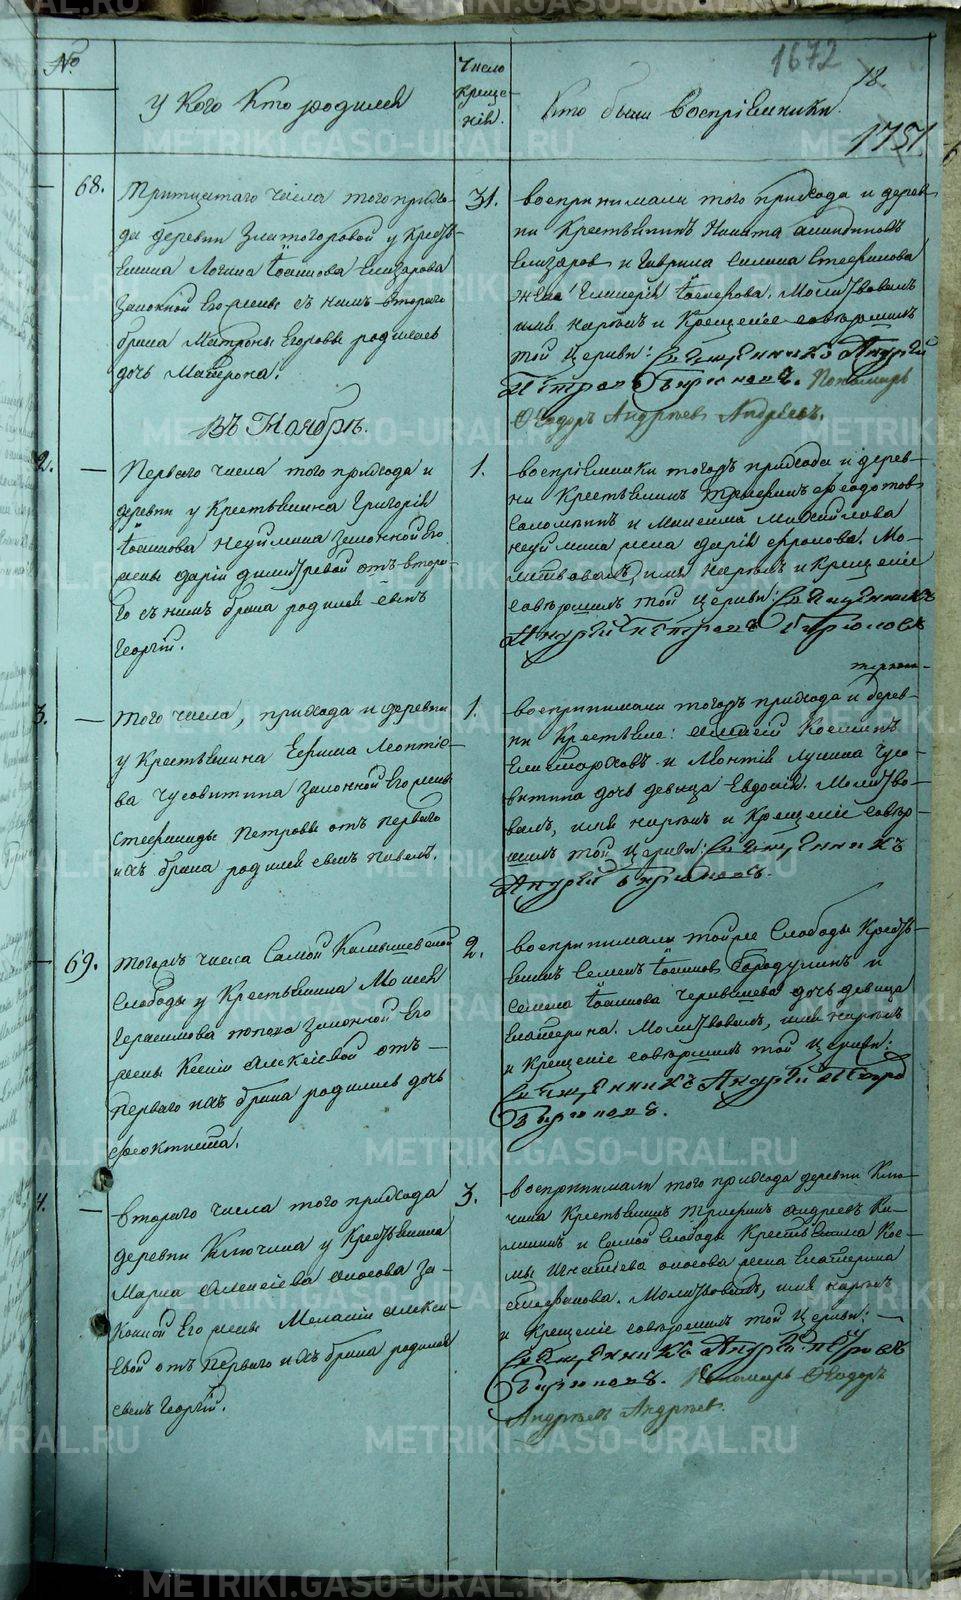 №
У Кого Кто родился
Число
креще-
нiя.
Кто были Воспрiемники.
1672
18.
1751
68.
Тритцетаго числа того прихо-
да деревни Златогоровой у Крестья-
нина Логина Иоаннова Елизарова
Законной Его жены съ нимъ втораго
брака Матроны Егоровы родилась
дочь Матрона.
31.
воспринимали того прихода и дерев-
ни Крестьянинъ Никита
Елизаровъ и Гаврила Стефанова
жена. Молитвовалъ
имя нарекъ и Крещенiе совершилъ
той Церкви: Священникъ Андрей
Петровъ Бирюковъ. Пономарь
Ѳеодоръ Андреевъ Андреевъ.
Въ Ноябрѣ.
2.
—
Перваго числа того прихода и
деревни у Крестьянина Григорiя
Иоаннова законной Его
жены Дарiи Димитревой отъ второ-
го съ нимъ брака родился сынъ
Георгiй.
1.
воспрiемники тогожъ прихода и дерев-
ни Крестьянинъ Ѳеодотовъ
и Максима Михайлова
жена Дарiя Фролова. Мо-
литвовалъ, имя нарекъ и Крещенiе
совершилъ той Церкви: Священникъ
Андрей Петровъ Бирюковъ
3.
—
Того числа, прихода и деревни
у Крестьянина Ефима Леонтiе-
ва Чусовитина законной Его жены
Стефаниды Петровы отъ перваго
ихъ брака родился сынъ Павелъ.
1.
воспринимали тогожъ прихода и дерев-
ни Крестьяне: Алексей Козминъ
и Лукина Чусо-
витина дочь девица Евдокiя. Молитво-
валъ, имя нарекъ и Крещенiе совер-
шилъ той Церкви: Священникъ
Андрей Бирюковъ.
69.
Тогожъ числа Самой Камышевской
Слободы у Крестьянина Моисея
Герасимова Попова законной Его
жены Ксенiи Алексiевой отъ
перваго ихъ брака родилась дочь
Феоктиста.
2.
воспринимали тойже Слободы Кресть-
янинъ Семенъ Иоанновъ Бородулинъ и
Семена Иоаннова дочь девица
Екатерина. Молитвовалъ, имя нарекъ
и Крещенiе совершилъ той Церкви:
Священникъ Андрей Петров
Бирюковъ.
4.
—
втораго числа того прихода
деревни Ключика у Крестьянина
Марка Алексiева Аносова за-
конной Его жены Меланiи Алексi-
евой отъ Перваго ихъ брака родился
сынъ Георгiй.
3.
Воспринимали того прихода деревни Клю-
чика Крестьянинъ Андреевъ
и Самой Слободы Крестьянина Кос-
мы Игнатiева Аносова жена Екатерина
Молитвовалъ, имя нарекъ
и Крещенiе совершилъ той Церкви: —
Священникъ Андрей Петровъ
Бирюковъ. Пономарь Ѳеодоръ
Андреевъ Андреевъ.
METRIKI.GASO-URAL.RU